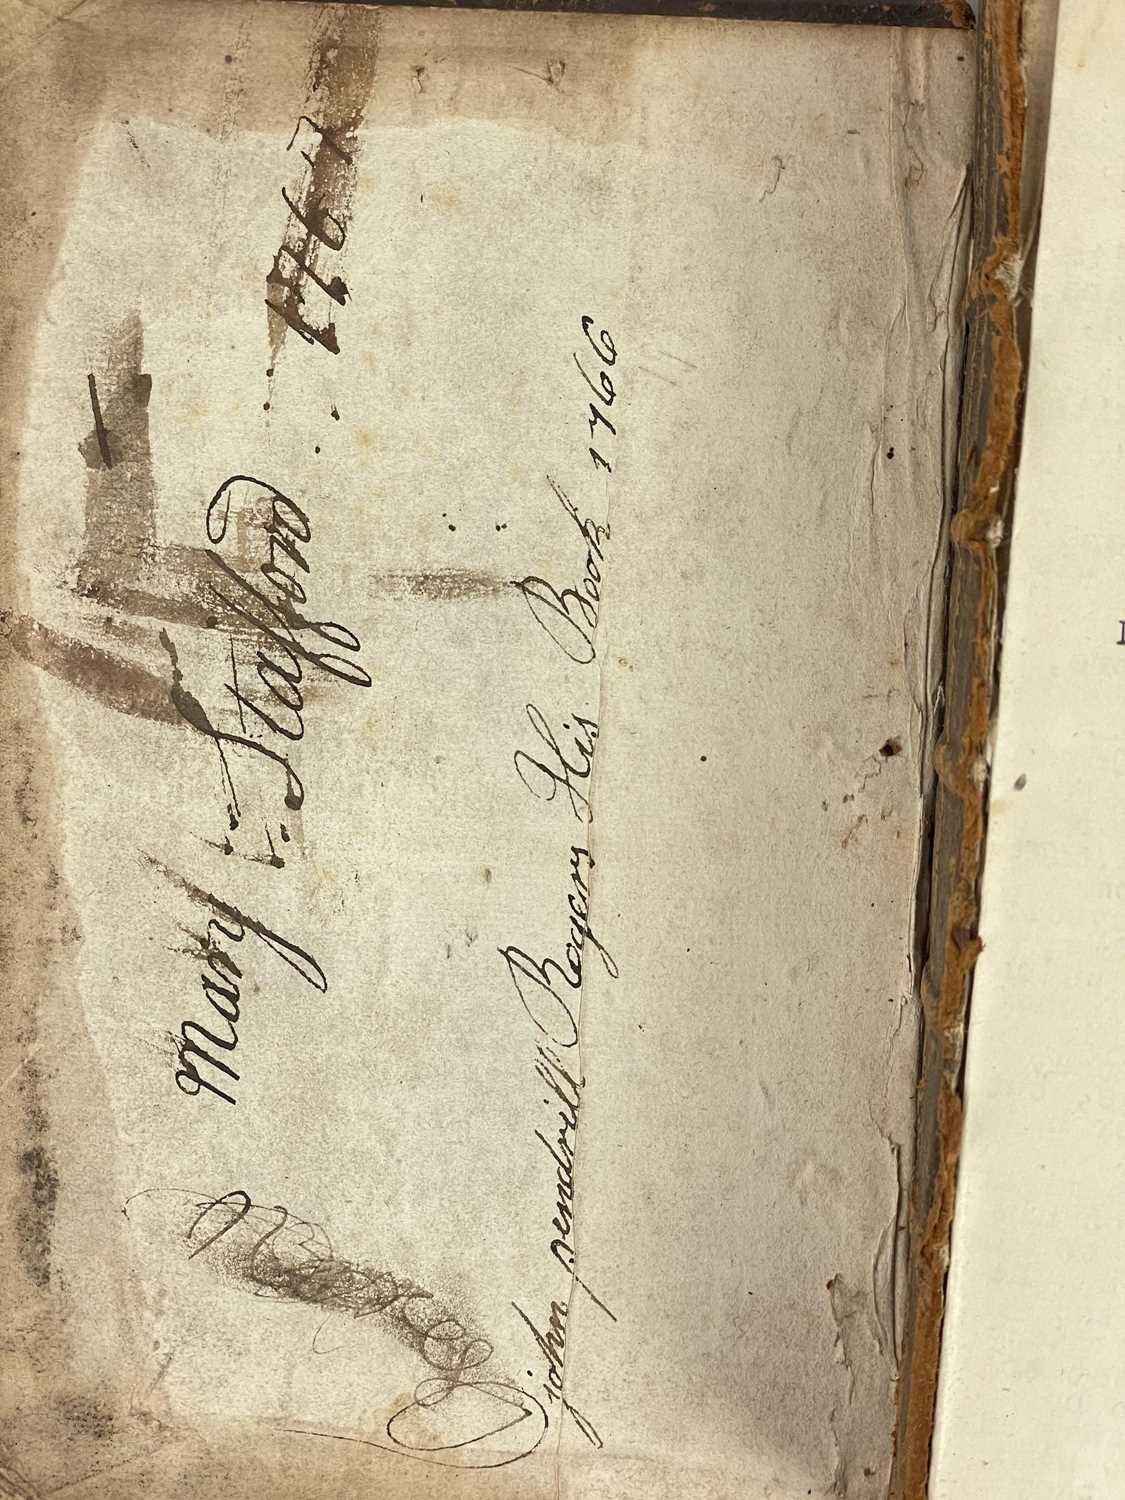 Mary Stafford 1767
john pendrill Rogers His Book 1766